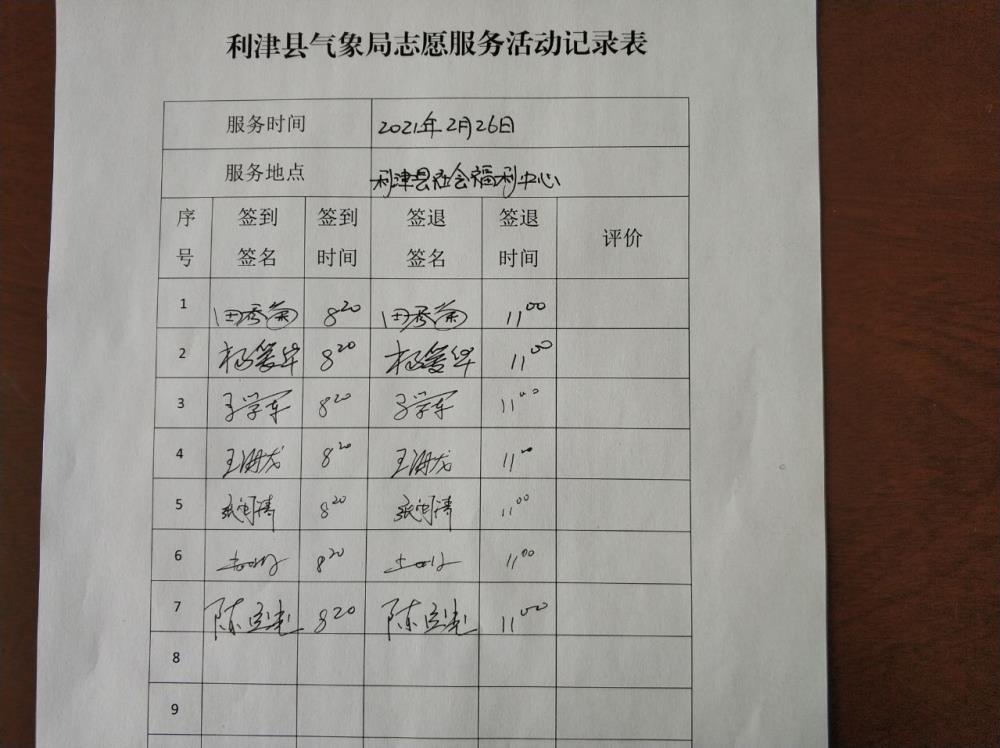 利津县气象局志愿服务活动记录表
服务时间 2021年2月26日
服务地点 利津县社会福利中心
序号 签到签名 签到时间 签退签名 签退时间 评价
1 田秀菊 8 20 田秀菊 11 00
2 杨爱华 8 20 杨爱华 11 00
3 8 20 11 00
4 8 20 11 00
5 8 20 11 00
6 8 20 11 00
7 陈 8 20 陈 11 00
8
9